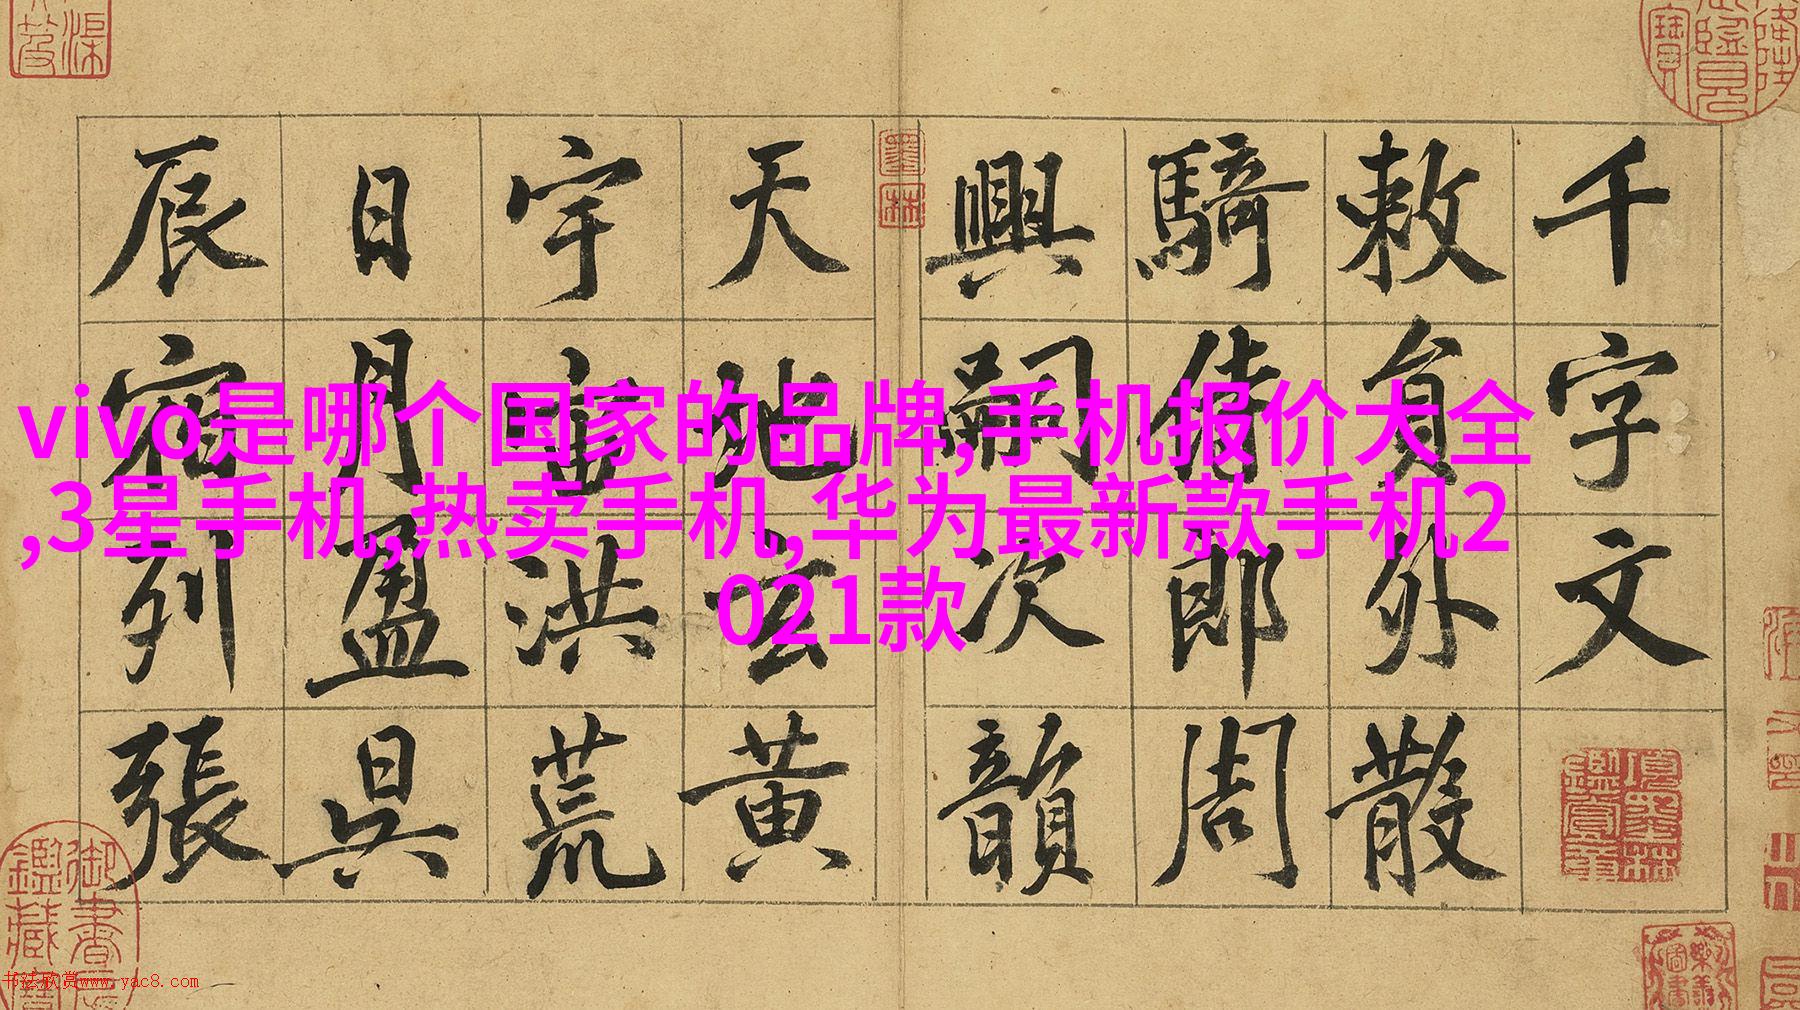 vivo是哪个国家的品牌,手机报价大全
,3星手机,热卖手机,华为最新款手机2
021款
千字文
敕員外散
騎侍郎周
興嗣次韻
天地玄黄
宇宙洪荒
日月盈昃
辰宿列張
墨林
项墨林鑑賞章
书法欣赏www.yac8.com